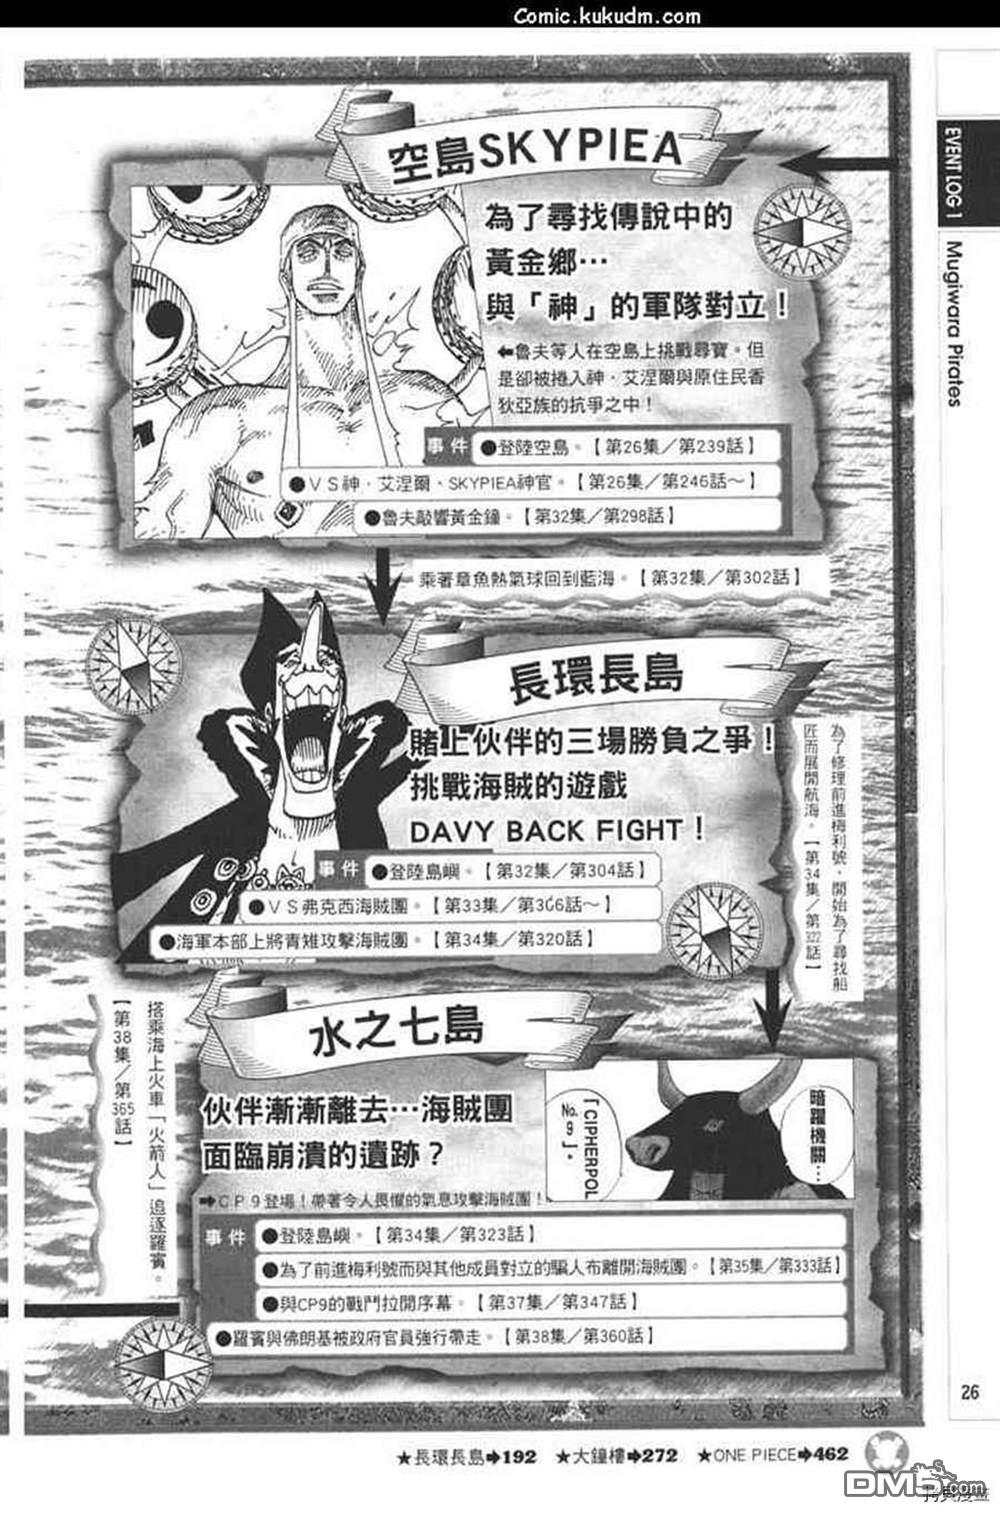 Comic.kukudm.com
EVENT LOG 1
Mugiwara Pirates
空島SKYPIEA
為了尋找傳說中的
黃金鄉…
與「神」的軍隊對立！
←魯夫等人在空島上挑戰尋寶。但
是卻被捲入神．艾涅爾與原住民香
狄亞族的抗爭之中！
事件
●登陸空島。【第26集／第239話】
●ＶＳ神．艾涅爾、SKYPIEA神官。【第26集／第246話～】
●魯夫敲響黃金鐘。【第32集／第298話】
乘著章魚熱氣球回到藍海。【第32集／第302話】
長環長島
賭上伙伴的三場勝負之爭！
挑戰海賊的遊戲
DAVY BACK FIGHT！
事件
●登陸島嶼。【第32集／第304話】
●ＶＳ弗克西海賊團。【第33集／第306話～】
●海軍本部上將青雉攻擊海賊團。【第34集／第320話】
為了修理前進梅利號，開始為了尋找船
匠而展開航海。【第34集／第322話】
水之七島
伙伴漸漸離去…海賊團
面臨崩潰的遺跡？
暗躍機關…
「CIPHERPOL
No.9」。
→ＣＰ９登場！帶著令人畏懼的氣息攻擊海賊團！
事件
●登陸島嶼。【第34集／第323話】
●為了前進梅利號而與其他成員對立的騙人布離開海賊團。【第35集／第333話】
●與CP9的戰鬥拉開序幕。【第37集／第347話】
●羅賓與佛朗基被政府官員強行帶走。【第38集／第360話】
搭乘海上火車「火箭人」追逐羅賓。
【第38集／第365話】
26
★長環長島➡192 ★大鐘樓➡272 ★ONE PIECE➡462
DM5.com